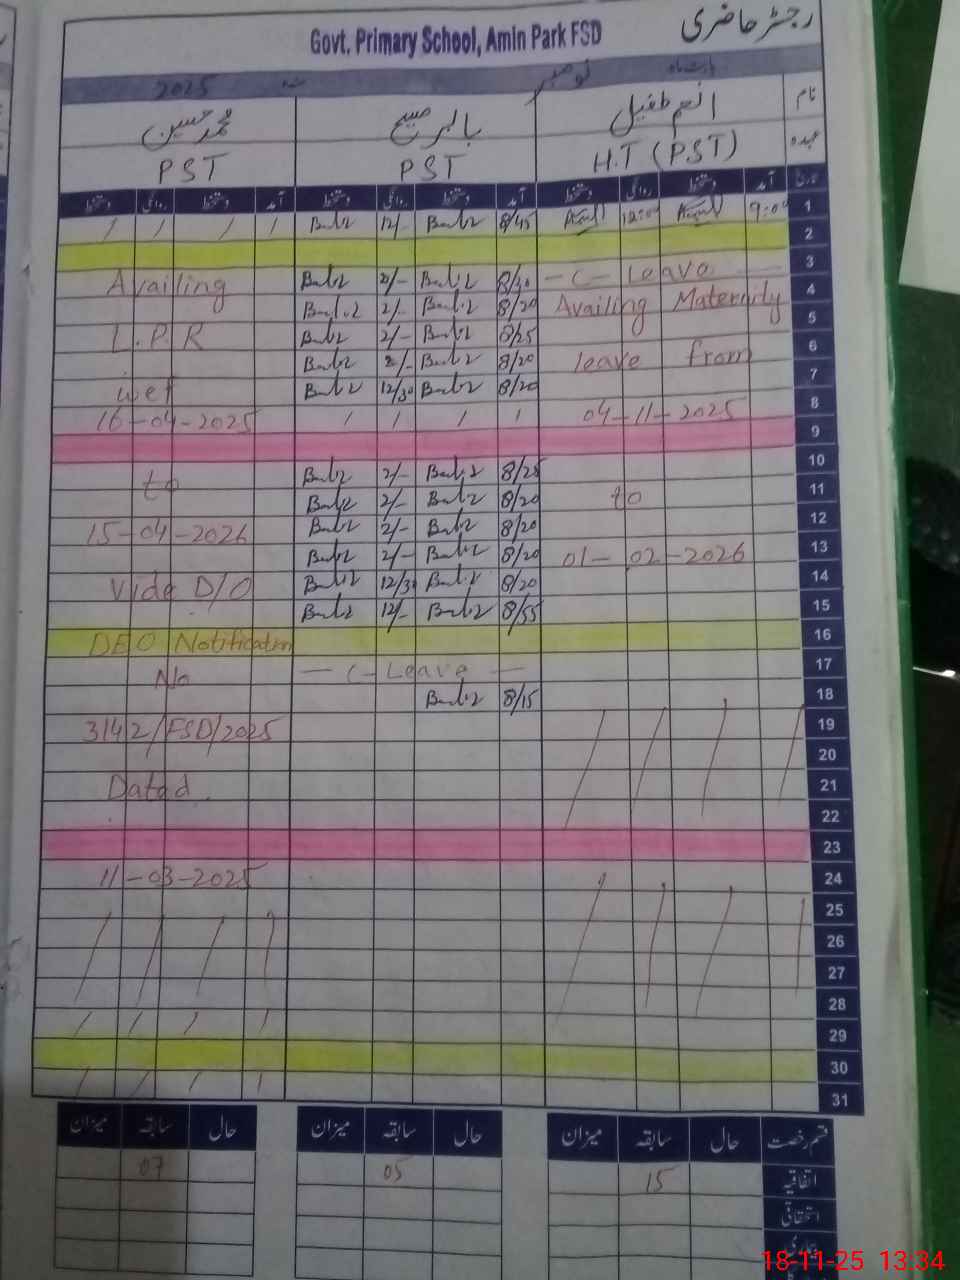 رجسٹر حاضری
Govt. Primary School, Amin Park FSD
بابت ماہ نومبر ء 2025
نام انعم طفیل بابر مسیح محمد حسین
عہدہ H.T (PST) PST PST
تاریخ آمد دستخط روانگی دستخط آمد دستخط روانگی دستخط آمد دستخط روانگی دستخط
/ / / / 12/- 8/45 12:00 9:00 1
2
Availing 2/- 8/30 -C- Leave - 3
8/20 Availing Maternity 4
2/-
L.P.R 2/- 8/25 5
2/- 8/20 leave from 6
wef 12/30 8/20 7
16-04-2025 / / / / 04-11-2025 8
9
2/- 8/25 10
to 2/- 8/20 to 11
15-04-2026 2/- 8/20 12
2/- 8/20 01-02-2026 13
Vide D/O 12/30 8/20 14
12/- 8/55 15
DEO Notification 16
No - C-Leave - 17
8/15 18
3142/FSD/2025 19
20
Dated 21
22
23
11-03-2025 24
25
26
27
28
/ / / / 29
30
/ / / / 31
قسم رخصت حال سابقہ میزان حال سابقہ میزان حال سابقہ میزان
اتفاقیہ 15 05 07
استحقاقی
بیماری
18-11-25 13:34